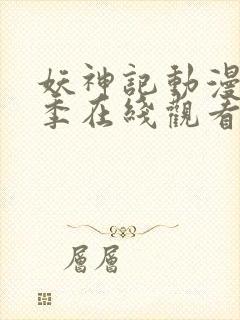 妖神記動漫
季在綫觀看
層層